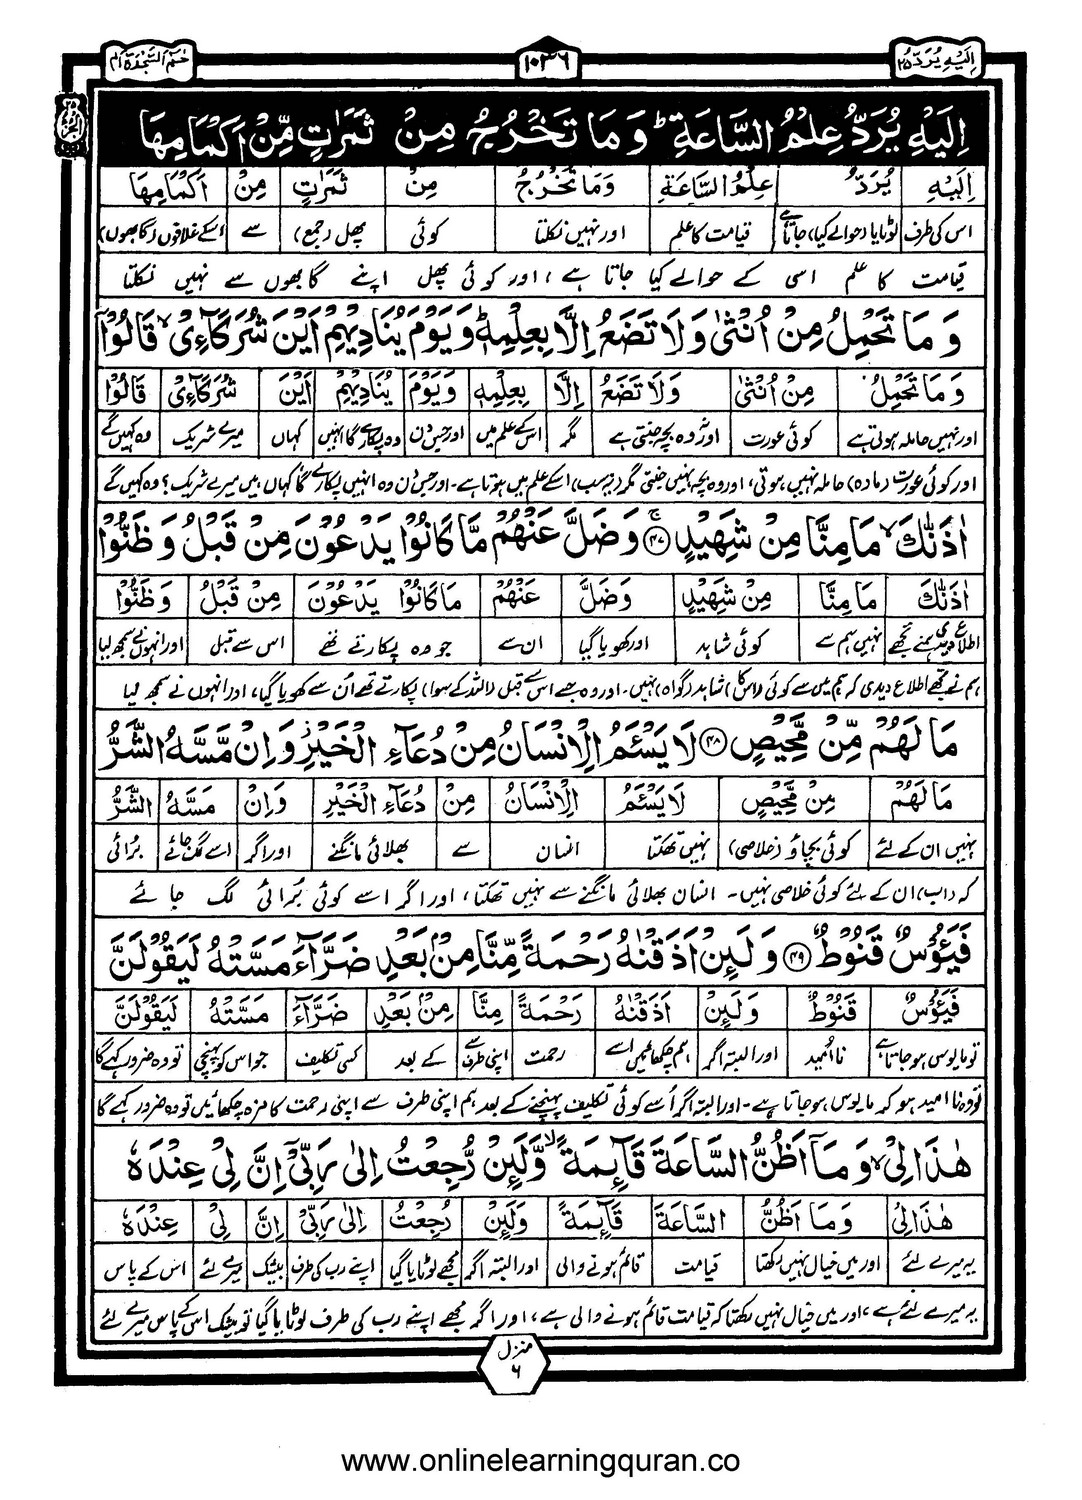 اِلَیْهِ یُرَدُّ ۲۵
۱۰۳۶
حٰمٓ السَّجْدَة ۴۱
اِلَیْهِ یُرَدُّ عِلْمُ السَّاعَةِ ؕ وَ مَا تَخْرُجُ مِنْ ثَمَرٰتٍ مِّنْ اَكْمَامِهَا
اِلَیْهِ یُرَدُّ عِلْمُ السَّاعَةِ وَمَا تَخْرُجُ مِنْ ثَمَرٰتٍ مِنْ اَكْمَامِهَا
اس کی طرف لوٹایا (حوالے کیا) جاتا ہے قیامت کا علم اور نہیں نکلتا کوئی پھل (جمع) سے اسکے غلافوں (گابھوں)
قیامت کا علم اسی کے حوالے کیا جاتا ہے، اور کوئی پھل اپنے گابھوں سے نہیں نکلتا
وَ مَا تَحْمِلُ مِنْ اُنْثٰی وَ لَا تَضَعُ اِلَّا بِعِلْمِهٖ ؕ وَ یَوْمَ یُنَادِیْهِمْ اَیْنَ شُرَكَآءِیْ ۙ قَالُوْۤا
وَ مَا تَحْمِلُ مِنْ اُنْثٰی وَلَا تَضَعُ اِلَّا بِعِلْمِهٖ وَیَوْمَ یُنَادِیْهِمْ اَیْنَ شُرَكَآءِیْ قَالُوْۤا
اور نہیں حاملہ ہوتی ہے کوئی عورت اور نہ وہ بچہ جنتی ہے مگر اس کے علم میں اور جس دن وہ پکارے گا انہیں کہاں میرے شریک وہ کہیں گے
اور کوئی عورت (مادہ) حاملہ نہیں ہوتی، اور وہ بچہ نہیں جنتی مگر (یہ سب) اسکے علم میں ہوتا ہے۔ اور جس دن وہ انہیں پکارے گا کہاں ہیں میرے شریک؟ وہ کہیں گے
اٰذَنّٰكَ ۙ مَا مِنَّا مِنْ شَهِیْدٍ ۚ ﴿۴۷﴾ وَ ضَلَّ عَنْهُمْ مَّا كَانُوْا یَدْعُوْنَ مِنْ قَبْلُ وَ ظَنُّوْا
اٰذَنّٰكَ مَا مِنَّا مِنْ شَهِیْدٍ وَضَلَّ عَنْهُمْ مَا كَانُوْا یَدْعُوْنَ مِنْ قَبْلُ وَ ظَنُّوْا
اطلاع دیدی ہمنے تجھے نہیں ہم سے کوئی شاہد اور کھویا گیا ان سے جو وہ پکارتے تھے اس سے قبل اور انہوں نے سمجھ لیا
ہم نے تجھے اطلاع دیدی کہ ہم میں سے کوئی (اس کا) شاہد (گواہ) نہیں۔ اور وہ جسے اس سے قبل (اللہ کے سوا) پکارتے تھے اُن سے کھویا گیا، اور انہوں نے سمجھ لیا
مَا لَهُمْ مِّنْ مَّحِیْصٍ ﴿۴۸﴾ لَا یَسْـَٔمُ الْاِنْسَانُ مِنْ دُعَآءِ الْخَیْرِ ؗ وَ اِنْ مَّسَّهُ الشَّرُّ
مَا لَهُمْ مِنْ مَّحِیْصٍ لَا یَسْـَٔمُ الْاِنْسَانُ مِنْ دُعَآءِ الْخَیْرِ وَاِنْ مَسَّهُ الشَّرُّ
نہیں ان کے لئے کوئی بچاؤ (خلاصی) نہیں تھکتا انسان سے بھلائی مانگنے اور اگر اسے لگ جائے بُرائی
کہ (اب) ان کے لئے کوئی خلاصی نہیں۔ انسان بھلائی مانگنے سے نہیں تھکتا، اور اگر اسے کوئی بُرائی لگ جائے
فَیَـُٔوْسٌ قَنُوْطٌ ﴿۴۹﴾ وَ لَىِٕنْ اَذَقْنٰهُ رَحْمَةً مِّنَّا مِنْۢ بَعْدِ ضَرَّآءَ مَسَّتْهُ لَیَقُوْلَنَّ
فَیَـُٔوْسٌ قَنُوْطٌ وَلَىِٕنْ اَذَقْنٰهُ رَحْمَةً مِنَّا مِنْۢ بَعْدِ ضَرَّآءَ مَسَّتْهُ لَیَقُوْلَنَّ
تو مایوس ہو جاتا ہے نا امید اور البتہ اگر ہم چکھائیں اسے رحمت اپنی طرف سے کے بعد کسی تکلیف جو اس کو پہنچی تو وہ ضرور کہے گا
تو وہ نا امید ہو کر مایوس ہو جاتا ہے۔ اور البتہ اگر اُسے کوئی تکلیف پہنچنے کے بعد ہم اپنی طرف سے اپنی رحمت کا مزہ چکھائیں تو وہ ضرور کہے گا
هٰذَا لِیْ ۙ وَ مَاۤ اَظُنُّ السَّاعَةَ قَآىِٕمَةً ۙ وَّ لَىِٕنْ رُّجِعْتُ اِلٰی رَبِّیْۤ اِنَّ لِیْ عِنْدَهٗ
هٰذَا لِیْ وَ مَاۤ اَظُنُّ السَّاعَةَ قَآىِٕمَةً وَلَىِٕنْ رُجِعْتُ اِلٰی رَبِّیْۤ اِنَّ لِیْ عِنْدَهٗ
یہ میرے لئے اور میں خیال نہیں رکھتا قیامت قائم ہونے والی اور البتہ اگر مجھے لوٹایا گیا اپنے رب کی طرف بیشک میرے لئے اس کے پاس
یہ میرے لئے ہے، اور میں خیال نہیں رکھتا کہ قیامت قائم ہونے والی ہے، اور اگر مجھے اپنے رب کی طرف لوٹایا گیا تو بیشک اس کے پاس میرے لئے
منزل ۶
www.onlinelearningquran.co